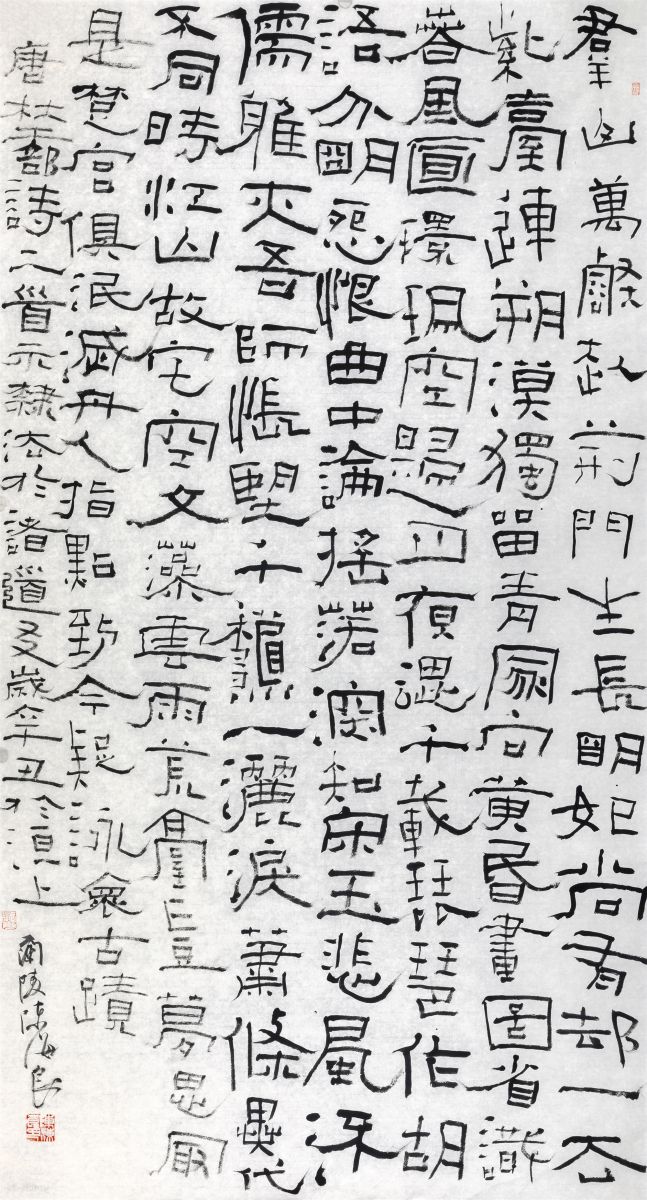 群山萬壑赴荊門生長明妃尚有邨一去
紫臺連朔漠獨留青冢向黃昏畫圖省識
春風面環珮空歸月夜魂千載琵琶作胡
語分明怨恨曲中論搖落深知宋玉悲風流
儒雅亦吾師悵望千秋一灑淚蕭條異代
不同時江山故宅空文藻雲雨荒臺豈夢思最
是楚宮俱泯滅舟人指點到今疑 詠懷古蹟
唐杜工部詩二首示隸法於諸道友歲辛丑於滬上
蘭陵陳海良